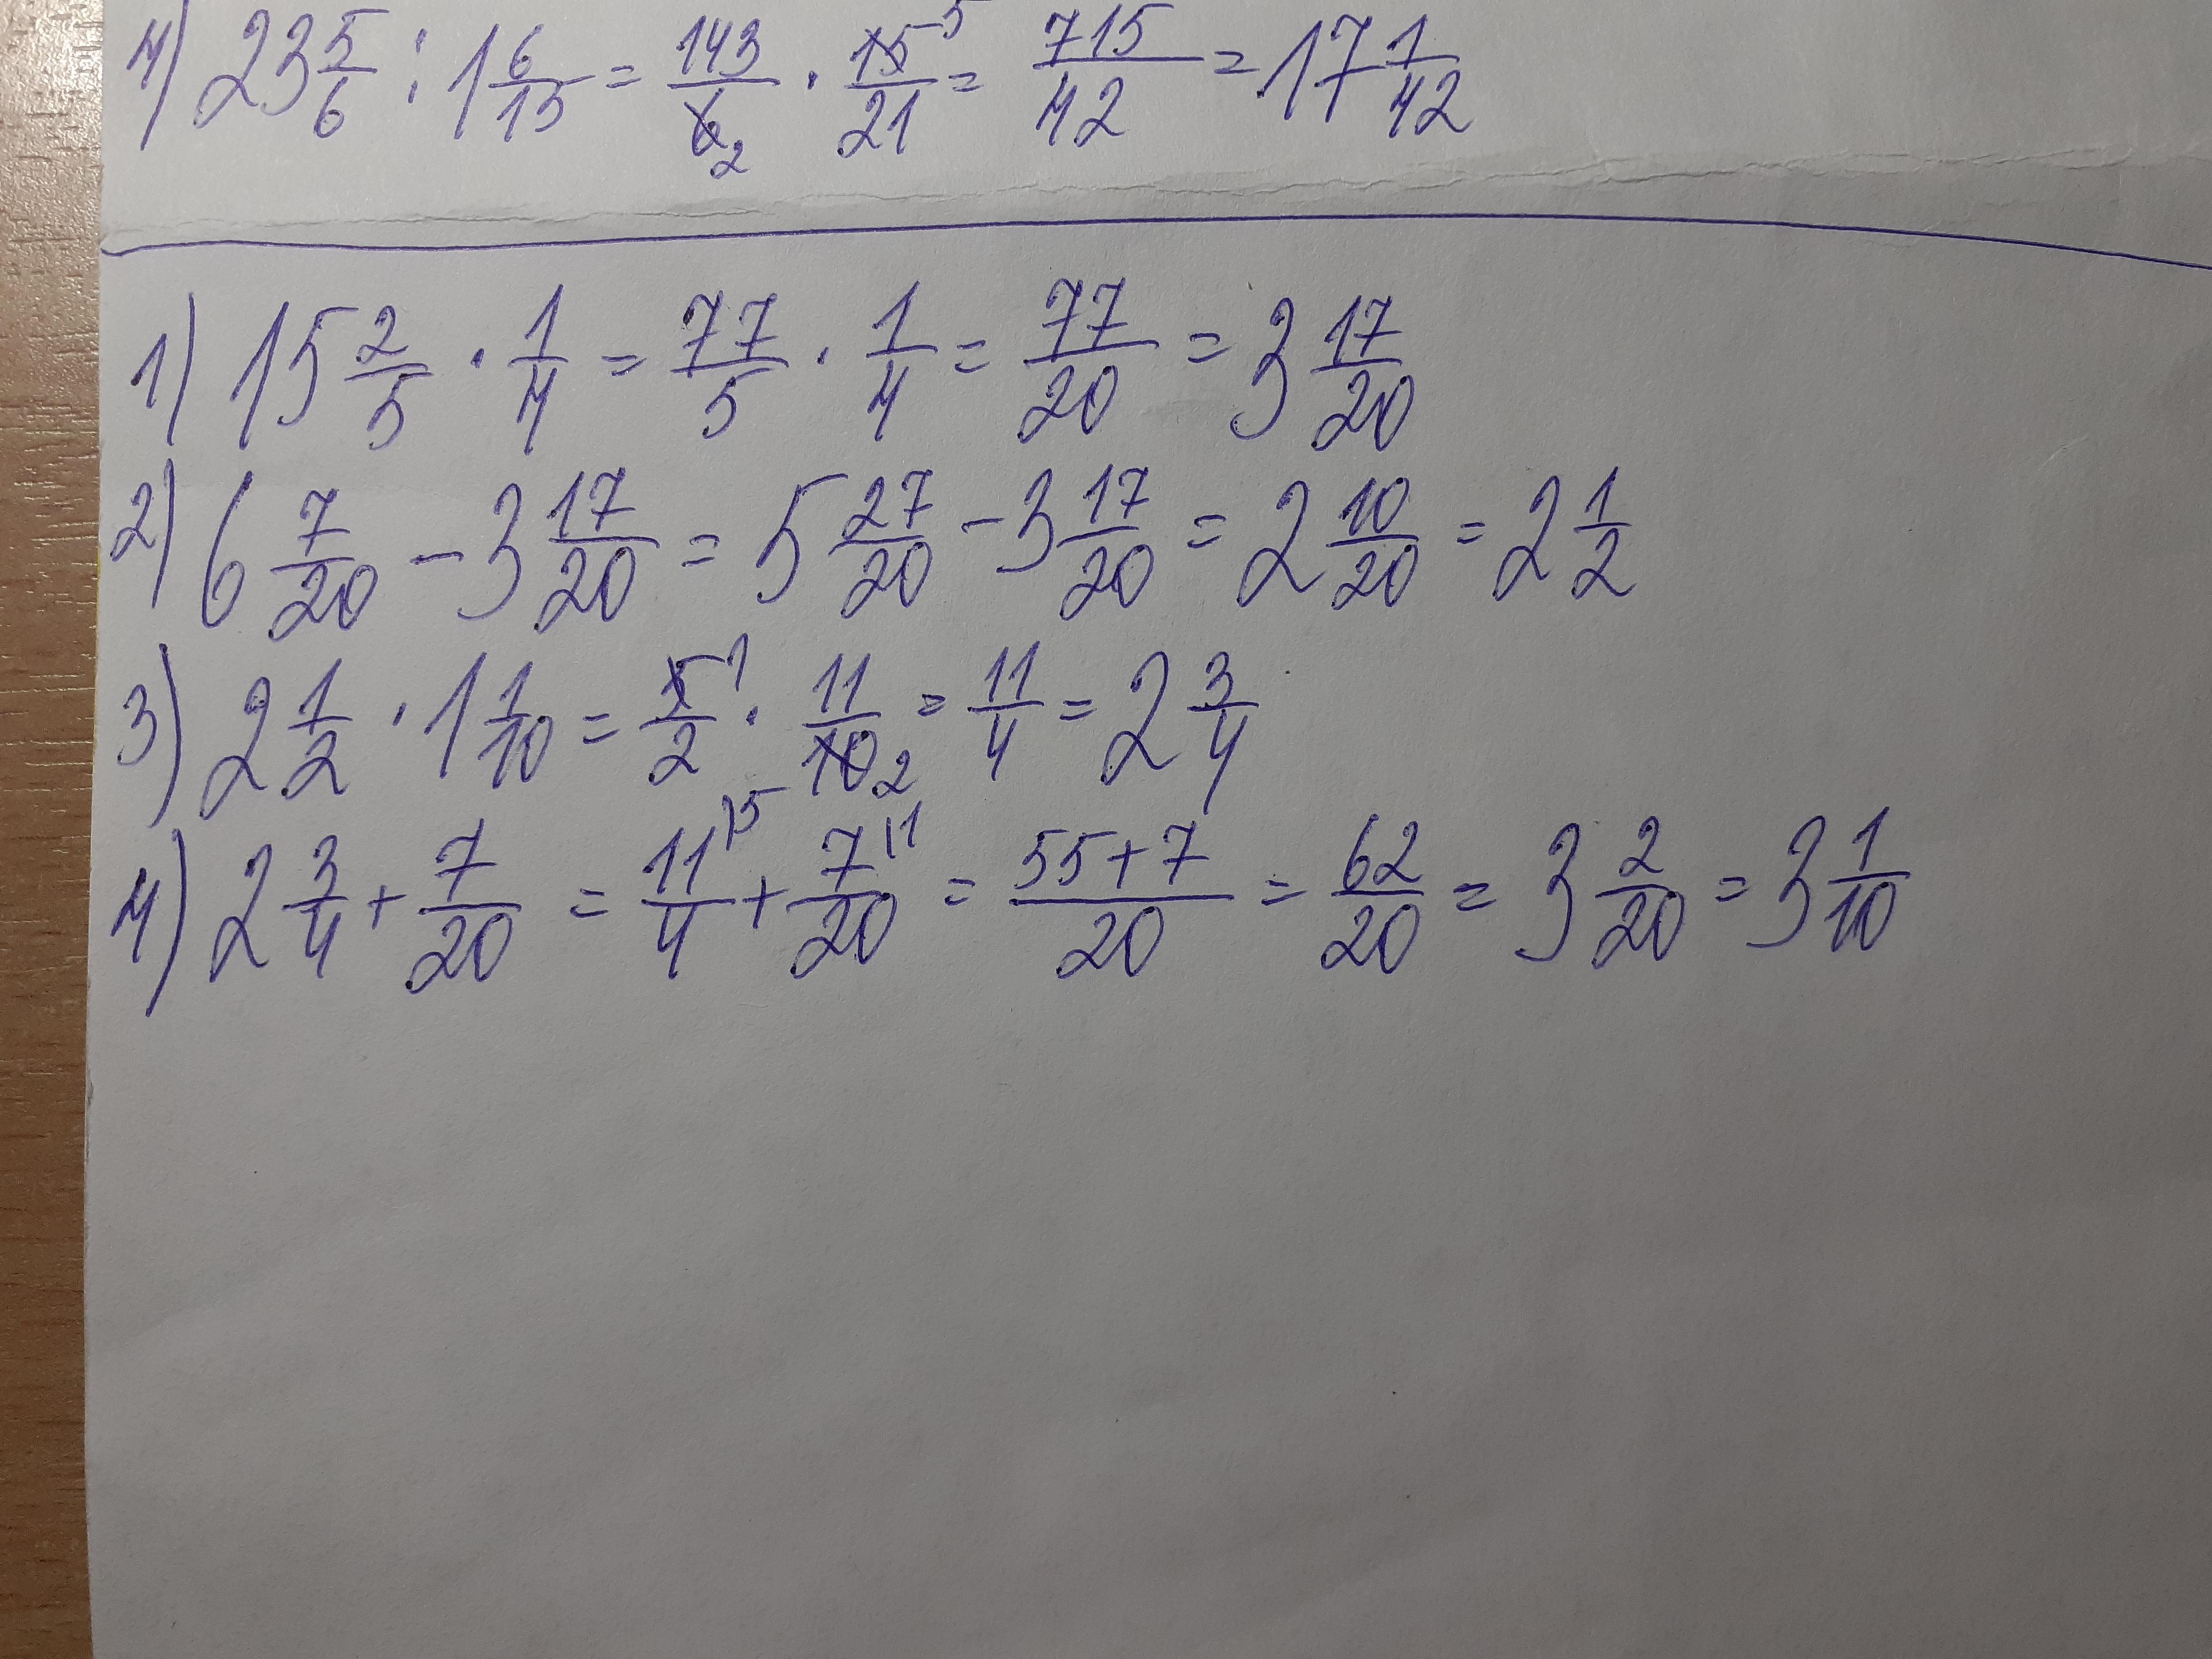 4) 23 5/6 : 1 6/15 = 143/6 2 · 15 5/21 = 715/42 = 17 1/42
1) 15 2/5 · 1/4 = 77/5 · 1/4 = 77/20 = 3 17/20
2) 6 7/20 - 3 17/20 = 5 27/20 - 3 17/20 = 2 10/20 = 2 1/2
3) 2 1/2 · 1 1/10 = 5 1/2 · 11/10 2 = 11/4 = 2 3/4
4) 2 3/4 + 7/20 = 11\5/4 + 7\1/20 = 55+7/20 = 62/20 = 3 2/20 = 3 1/10